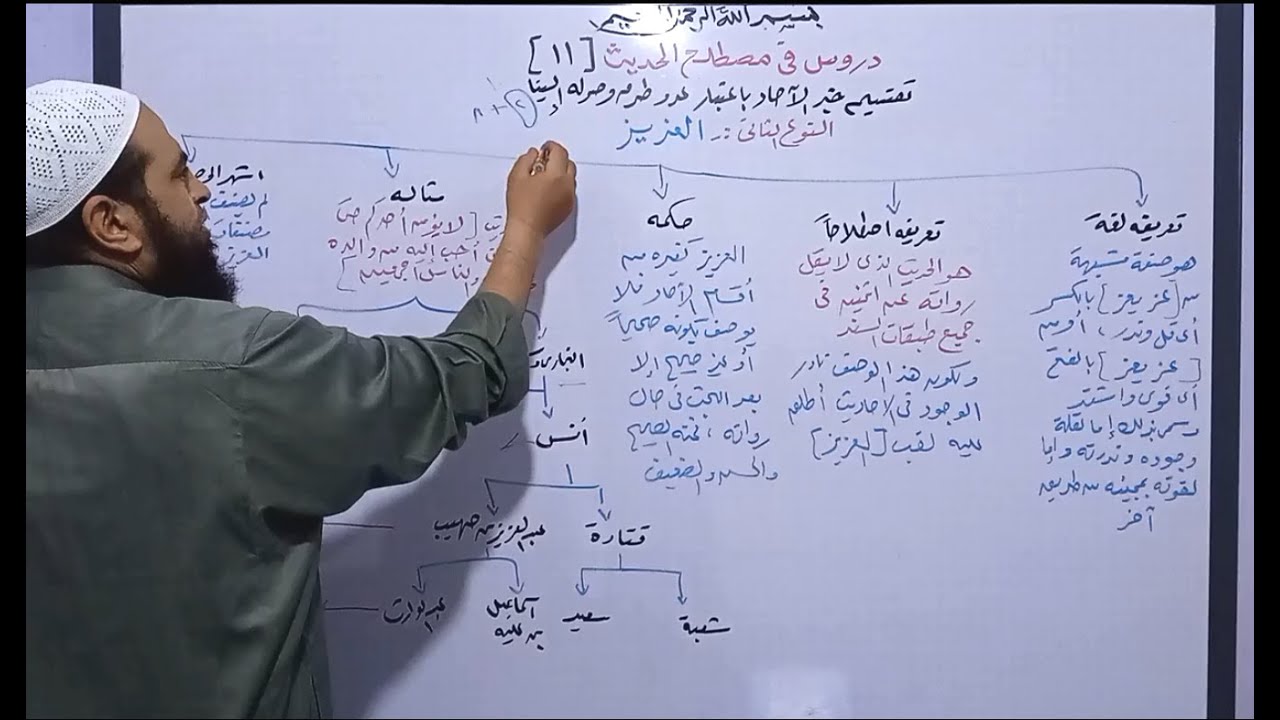 بسم الله الرحمن الرحيم
دروس في مصطلح الحديث [١١]
تقسيم خبر الآحاد باعتبار عدد طرقه وصوله إلينا
النوع الثاني :- العزيز
تعريفه لغة
هو صفة مشبهة
من [عز يعز] بالكسر
أي قل وندر ، أو من
[عز يعز] بالفتح
أي قوي واشتد
وسمي بذلك إما لقلة
وجوده وندرته وإما
لقوته بمجيئه من طريق
آخر
تعريفه اصطلاحاً
هو الحديث الذي لا يقل
رواته عن اثنين في
جميع طبقات السند
ولكون هذا الوصف نادر
الوجود في الأحاديث أطلق
عليه لقب [العزيز]
حكمه
العزيز كغيره من
أقسام الآحاد فلا
يوصف بكونه صحيحاً
أو غير صحيح إلا
بعد البحث في حال
رواته ، فمنه الصحيح
والحسن والضعيف
مثاله
[لا يؤمن أحدكم حتى
أحب إليه من والده
والناس أجمعين]
أنس
قتادة
عبد العزيز بن صهيب
شعبة
سعيد
اسماعيل بن علية
عبد الوارث
اشهر
لم يصنف
مصنفات
العزيز